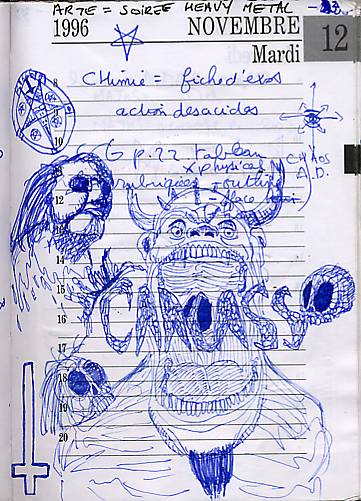 ARTE = SOIREE HEAVY METAL
1996 NOVEMBRE
Mardi 12
8
CHIMIE = fiche d'exos
action des acides
10
G p.22 Tableau
x physical
CHAOS
rubriques routine
A.D.
12
- face
13
14
15
16
17
18
19
20